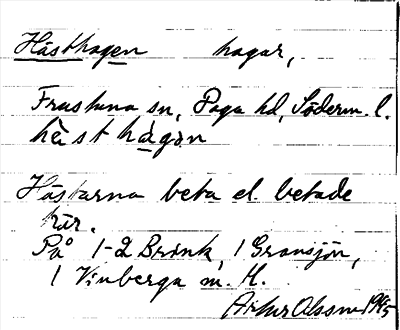 Hästhagen hagar,
Frustuna sn, Daga hd, Söderm. l.
hä̀st hàgan
Hästarna beta el. betade
här.
På 1-2 Brink, 1 Gransjön,
1 Vinberga m. fl.
Artur Olsson 1945